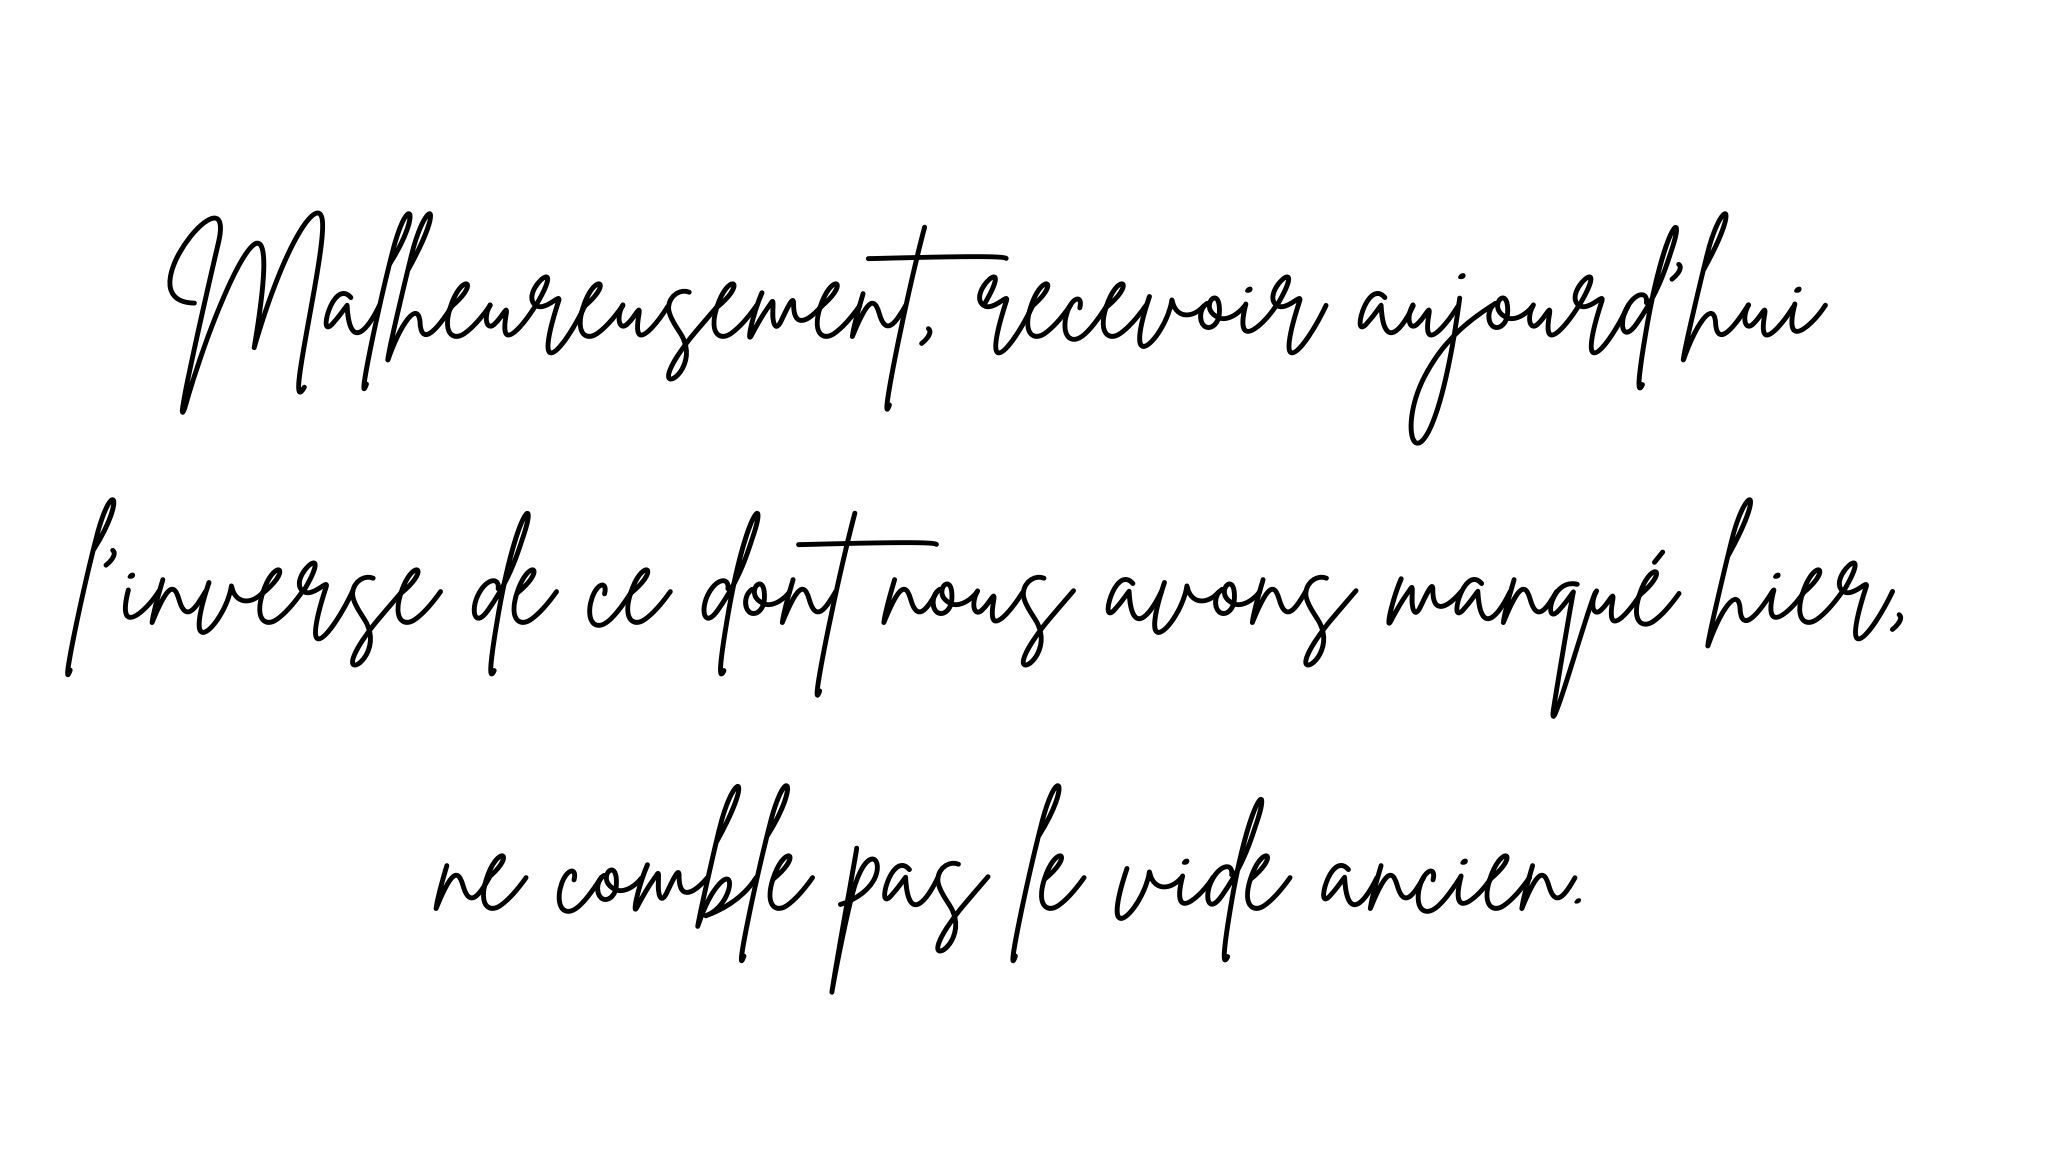 Malheureusement, recevoir aujourd'hui
l'inverse de ce dont nous avons manqué hier,
ne comble pas le vide ancien.